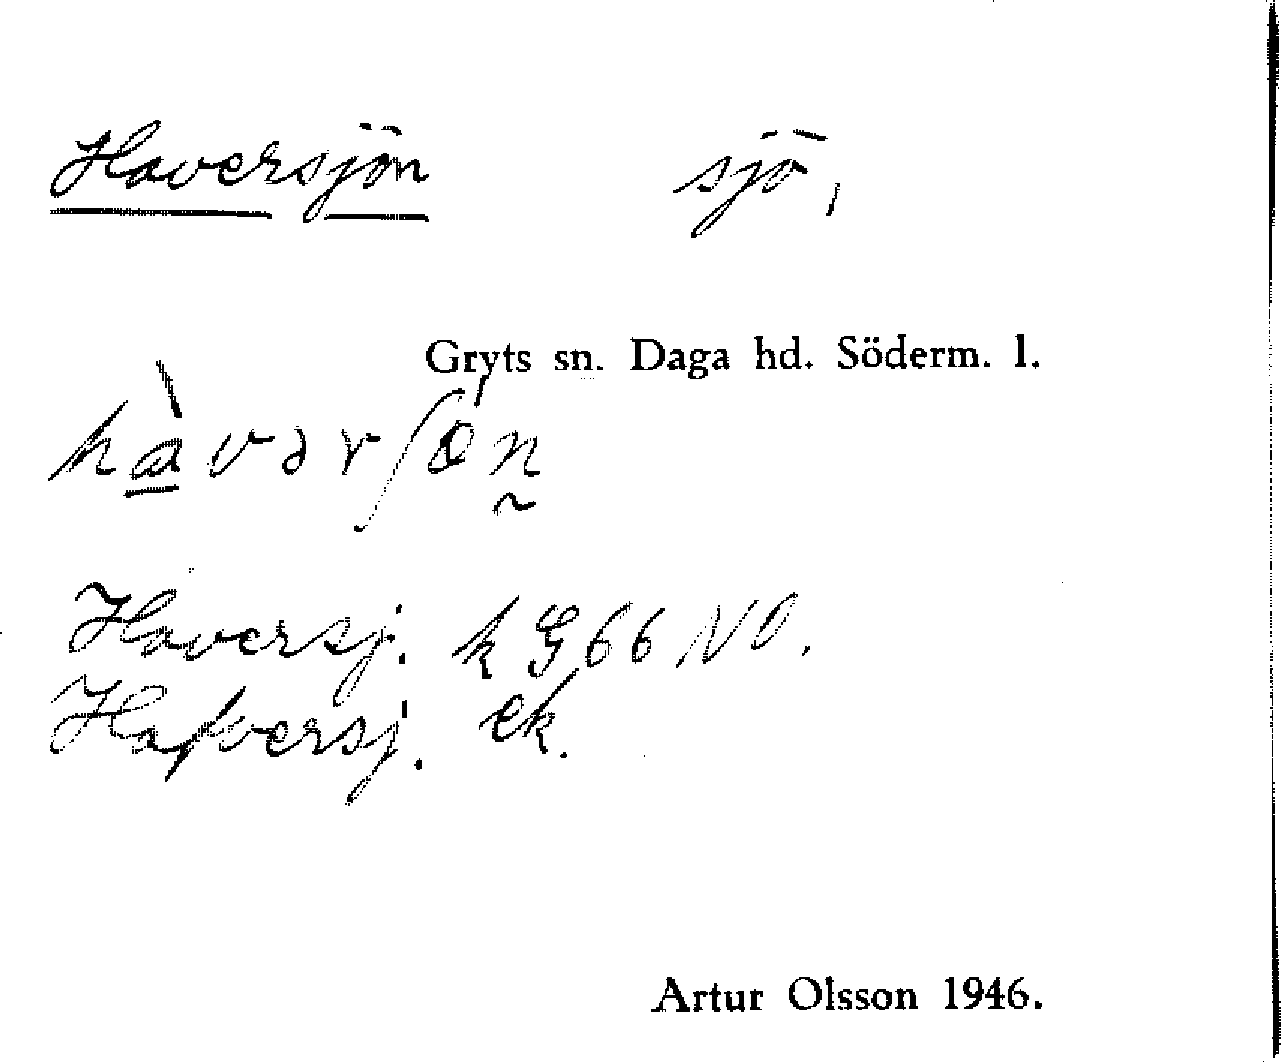 Haversjön sjö,
Gryts sn. Daga hd. Söderm. l.
hàvərʃö́n
Haversj. k G 66 NO.
Hafversj. ek.
Artur Olsson 1946.